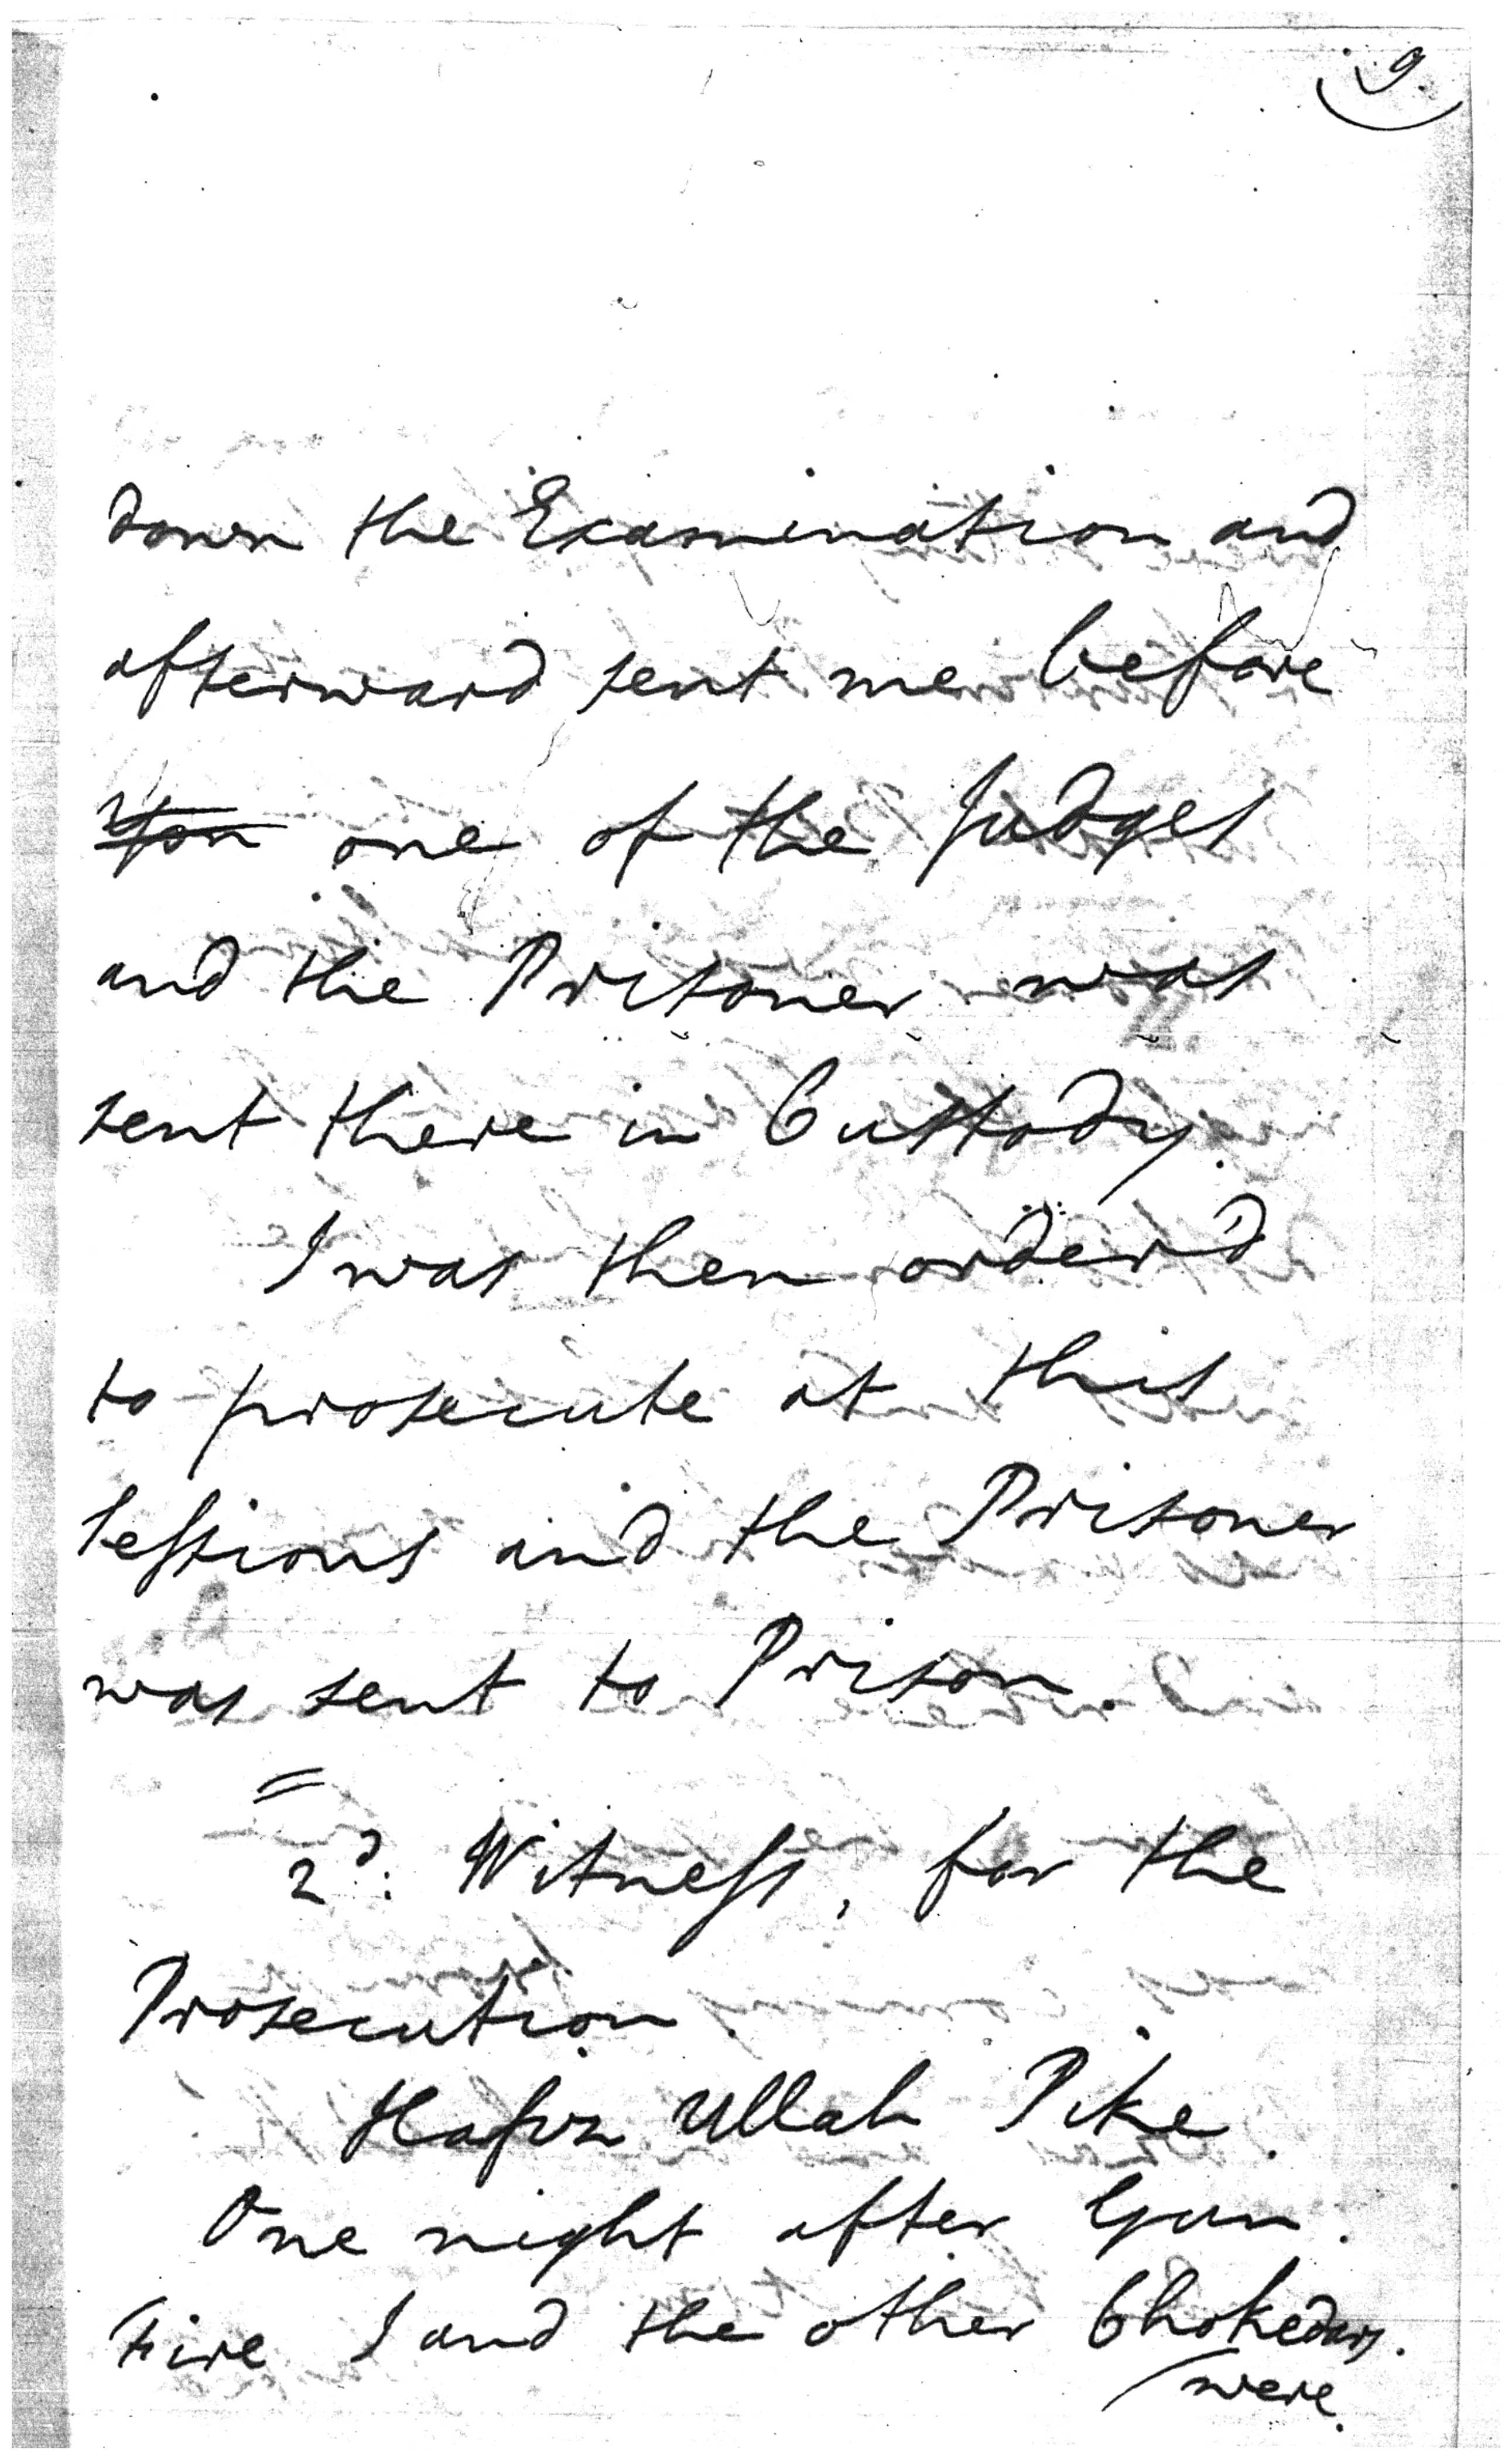 9.
down the Examination and
afterward sent me before
upon one of the Judges
and the Prisoner was
sent there in Custody.
I was then order'd
to prosecute at this
Sessions and the Prisoner
was sent to Prison.
2d. Witness, for the
Prosecution.
Hafiz Ullah Pike.
One night after Gun.
Fire I and the other Chokedars.
were.